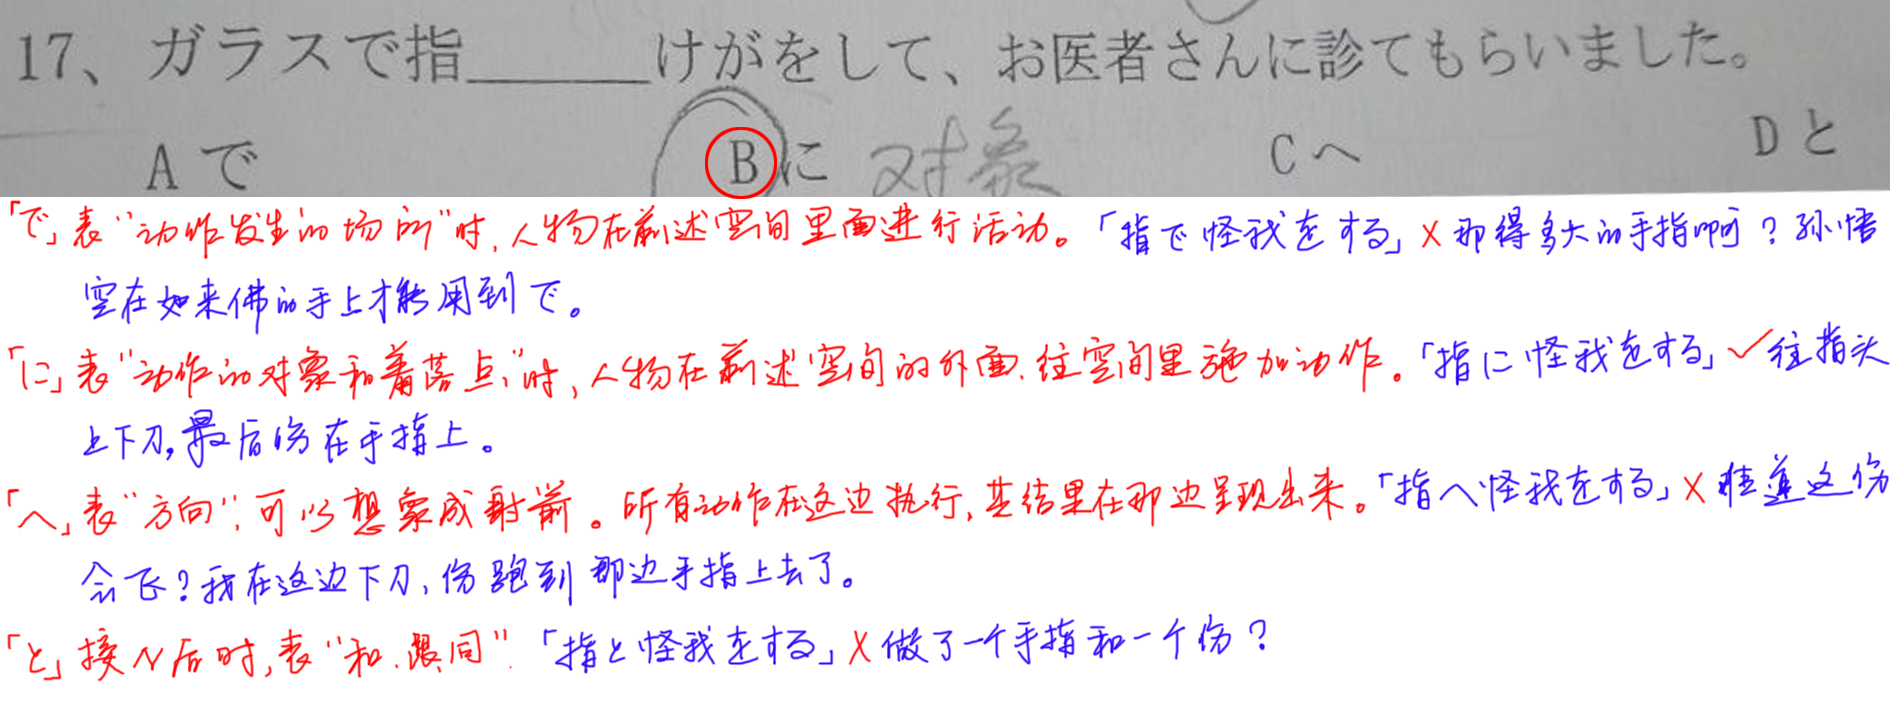 17、ガラスで指______けがをして、お医者さんに診てもらいました。
A で B に 对象 C へ D と
「で」表“动作发生的场所”时,人物在前述空间里面进行活动。「指で怪我をする」×那得多大的手指啊?孙悟
空在如来佛的手上才能用到で。
「に」表“动作的对象和着落点”时,人物在前述空间的外面、往空间里施加动作。「指に怪我をする」✓往指头
上下刀,最后伤在手指上。
「へ」表“方向”,可以想象成射箭。所有动作在这边执行,其结果在那边呈现出来。「指へ怪我をする」×难道这伤
会飞?我在这边下刀,伤跑到那边手指上去了。
「と」接N后时,表“和、跟、同”.「指と怪我をする」×做了一个手指和一个伤?